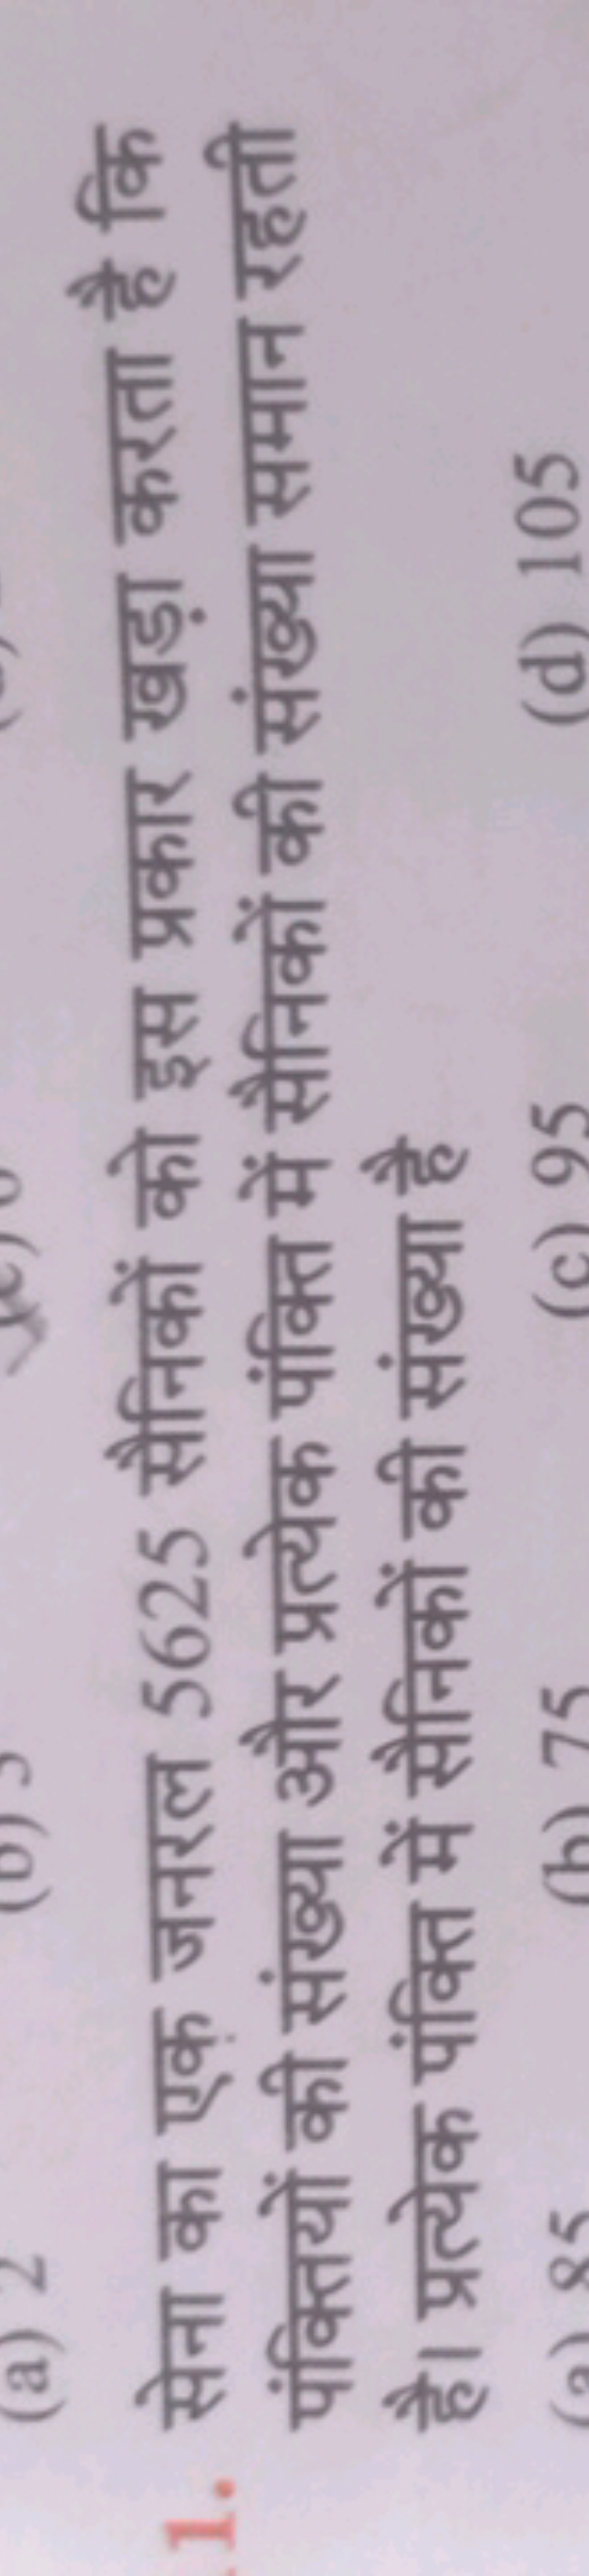 (a) 2 (b) 3
1. सेना का एक जनरल 5625 सैनिकों को इस प्रकार खड़ा करता है कि
पंक्तियों की संख्या और प्रत्येक पंक्ति में सैनिकों की संख्या समान रहती
है। प्रत्येक पंक्ति में सैनिकों की संख्या है
(a) 85 (b) 75 (c) 95 (d) 105